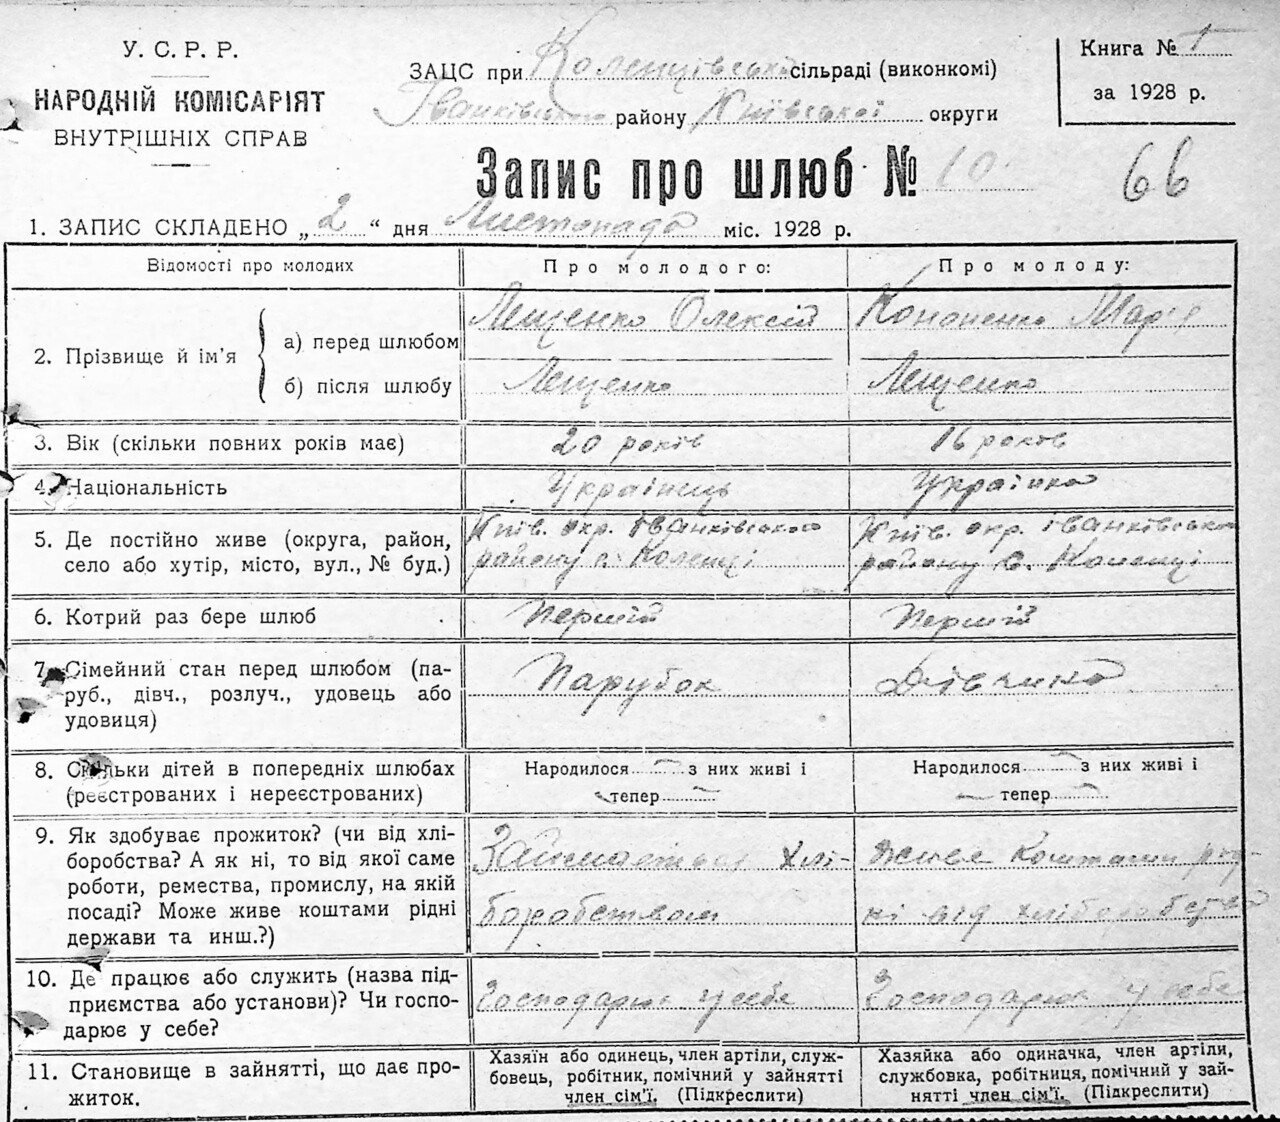 У. С. Р. Р.
НАРОДНІЙ КОМІСАРІЯТ
ВНУТРІШНІХ СПРАВ
ЗАЦС при Коленцівській сільраді (виконкомі)
Іванківського району Київської округи
Книга № 1
за 1928 р.
Запис про шлюб № 10
66
1. ЗАПИС СКЛАДЕНО „ 2 “ дня Листопада міс. 1928 р.
Відомості про молодих Про молодого: Про молоду:
2. Прізвище й ім'я
а) перед шлюбом Лещенко Олексій Кононенко Марія
б) після шлюбу Лещенко Лещенко
3. Вік (скільки повних років має) 20 років 16 років
4. Національність Українець Українка
5. Де постійно живе (округа, район, Київ. окр. Іванківського Київ. окр. Іванківсько
село або хутір, місто, вул., № буд.) району с. Коленці району с. Коленці
6. Котрий раз бере шлюб Перший Перший
7. Сімейний стан перед шлюбом (па-
руб., дівч., розлуч., удовець або Парубок Дівчина
удовиця)
8. Скільки дітей в попередніх шлюбах Народилося з них живі і Народилося з них живі і
(реєстрованих і нереєстрованих) тепер тепер
9. Як здобуває прожиток? (чи від хлі-
боробства? А як ні, то від якої саме Займається хлі- Живе коштами рід
роботи, ремества, промислу, на якій
посаді? Може живе коштами рідні боробством ні від хліборобства
держави та инш.?)
10. Де працює або служить (назва під-
приємства або установи)? Чи госпо- Господарює у себе Господарює у себе
дарює у себе?
11. Становище в зайнятті, що дає про-
житок.
Хазяїн або одинець, член артіли, служ-
бовець, робітник, помічний у зайнятті
член сім'ї. (Підкреслити)
Хазяйка або одиначка, член артіли,
службовка, робітниця, помічний у зай-
нятті член сім'ї. (Підкреслити)